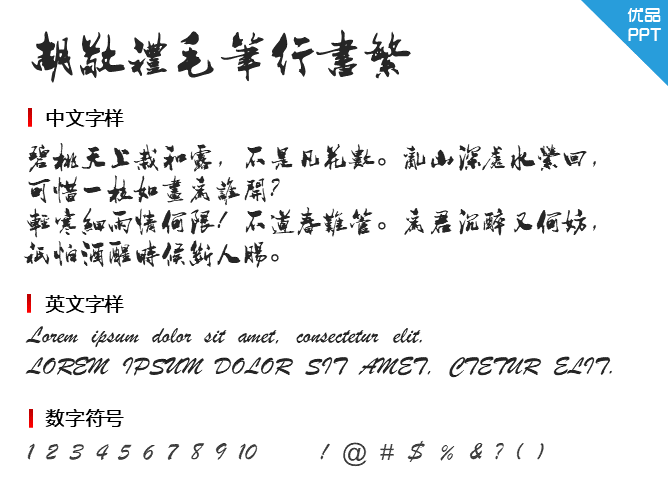 优品
PPT
胡敬禮毛筆行書繁
中文字样
碧桃天上栽和露，不是凡花數。亂山深處水縈回，
可惜一枝如畫為誰開？
輕寒細雨情何限！不道春難管。為君沉醉又何妨，
祇怕酒醒時候斷人腸。
英文字样
Lorem ipsum dolor sit amet, consectetur elit.
LOREM IPSUM DOLOR SIT AMET, CTETUR ELIT.
数字符号
1 2 3 4 5 6 7 8 9 10 ! @ # $ % & ? ( )